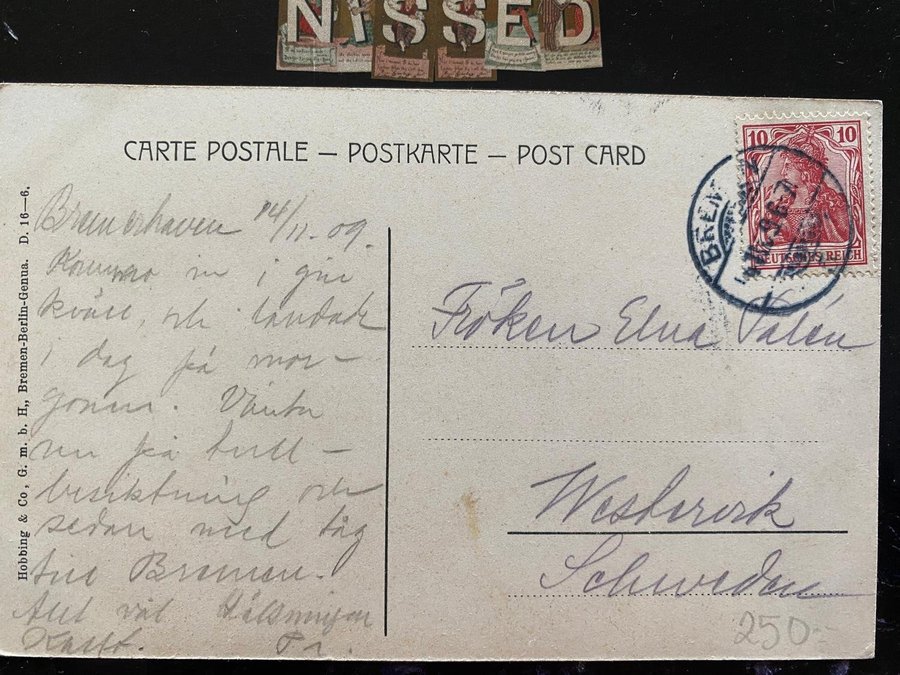 NISSED
CARTE POSTALE – POSTKARTE – POST CARD
10 10
DEUTSCHES REICH
BREM
Hobbing & Co., G. m. b. H., Bremen-Berlin-Genua. D. 16–6.
Bremerhaven 14/11.09.
Kommo in i går
kväll, och landade
i dag på mor-
gonen. Vänta
nu på tull-
besiktning och
sedan med tåg
till Bremen.
Allt väl Hälsningar
Fröken Elna
Westervik
Schweden
250:-